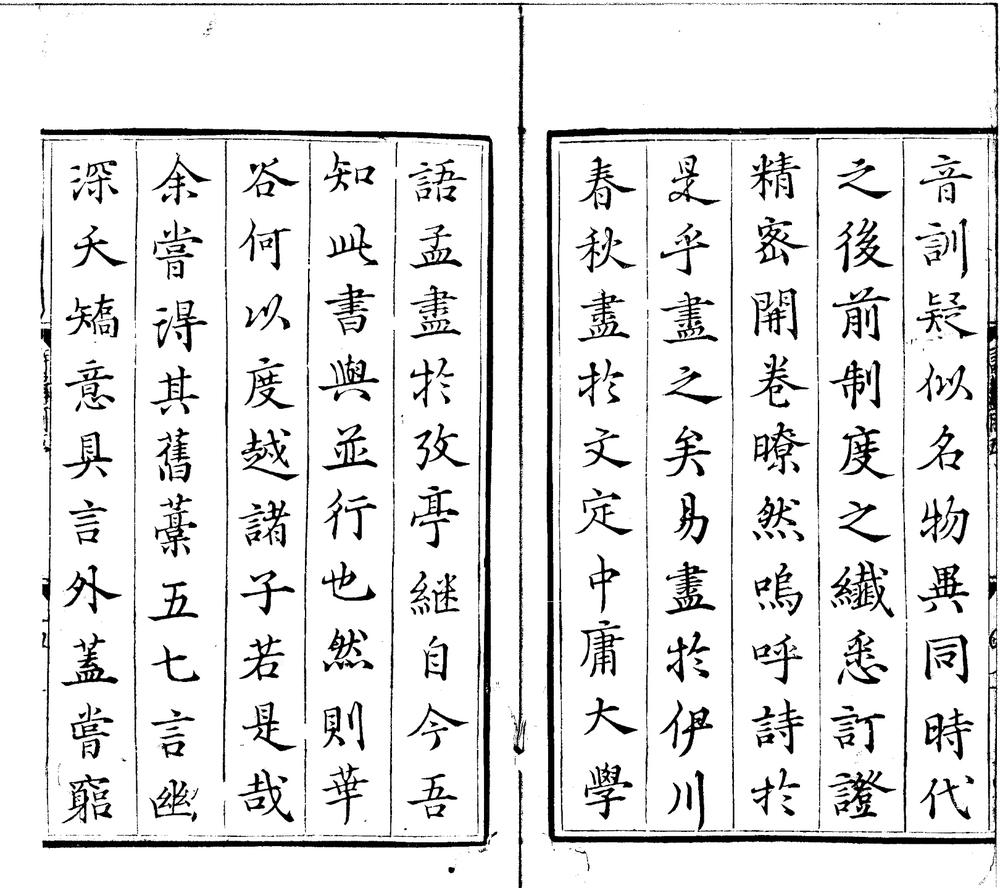 音訓疑似名物異同時代
之後前制度之纖悉訂證
精密開卷瞭然嗚呼詩於
是乎盡之矣易盡於伊川
春秋盡於文定中庸大學
語孟盡於攷亭繼自今吾
知此書與並行也然則華
谷何以度越諸子若是哉
余嘗淂其舊藁五七言幽
深夭矯意具言外蓋嘗窮